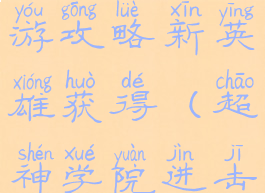 yóu gōng lüè xīn yīng
游攻略新英
xióng huò dé chāo
雄获得（超
shén xué yuàn jìn jī
神学院进击